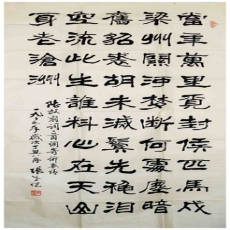 當年萬里覓封侯匹馬戍
梁州關河夢斷何處塵暗
舊貂裘胡未滅鬢先穐泪
空流此生誰料心在天山
身老滄洲
陸放翁詞一首調寄訴衷情